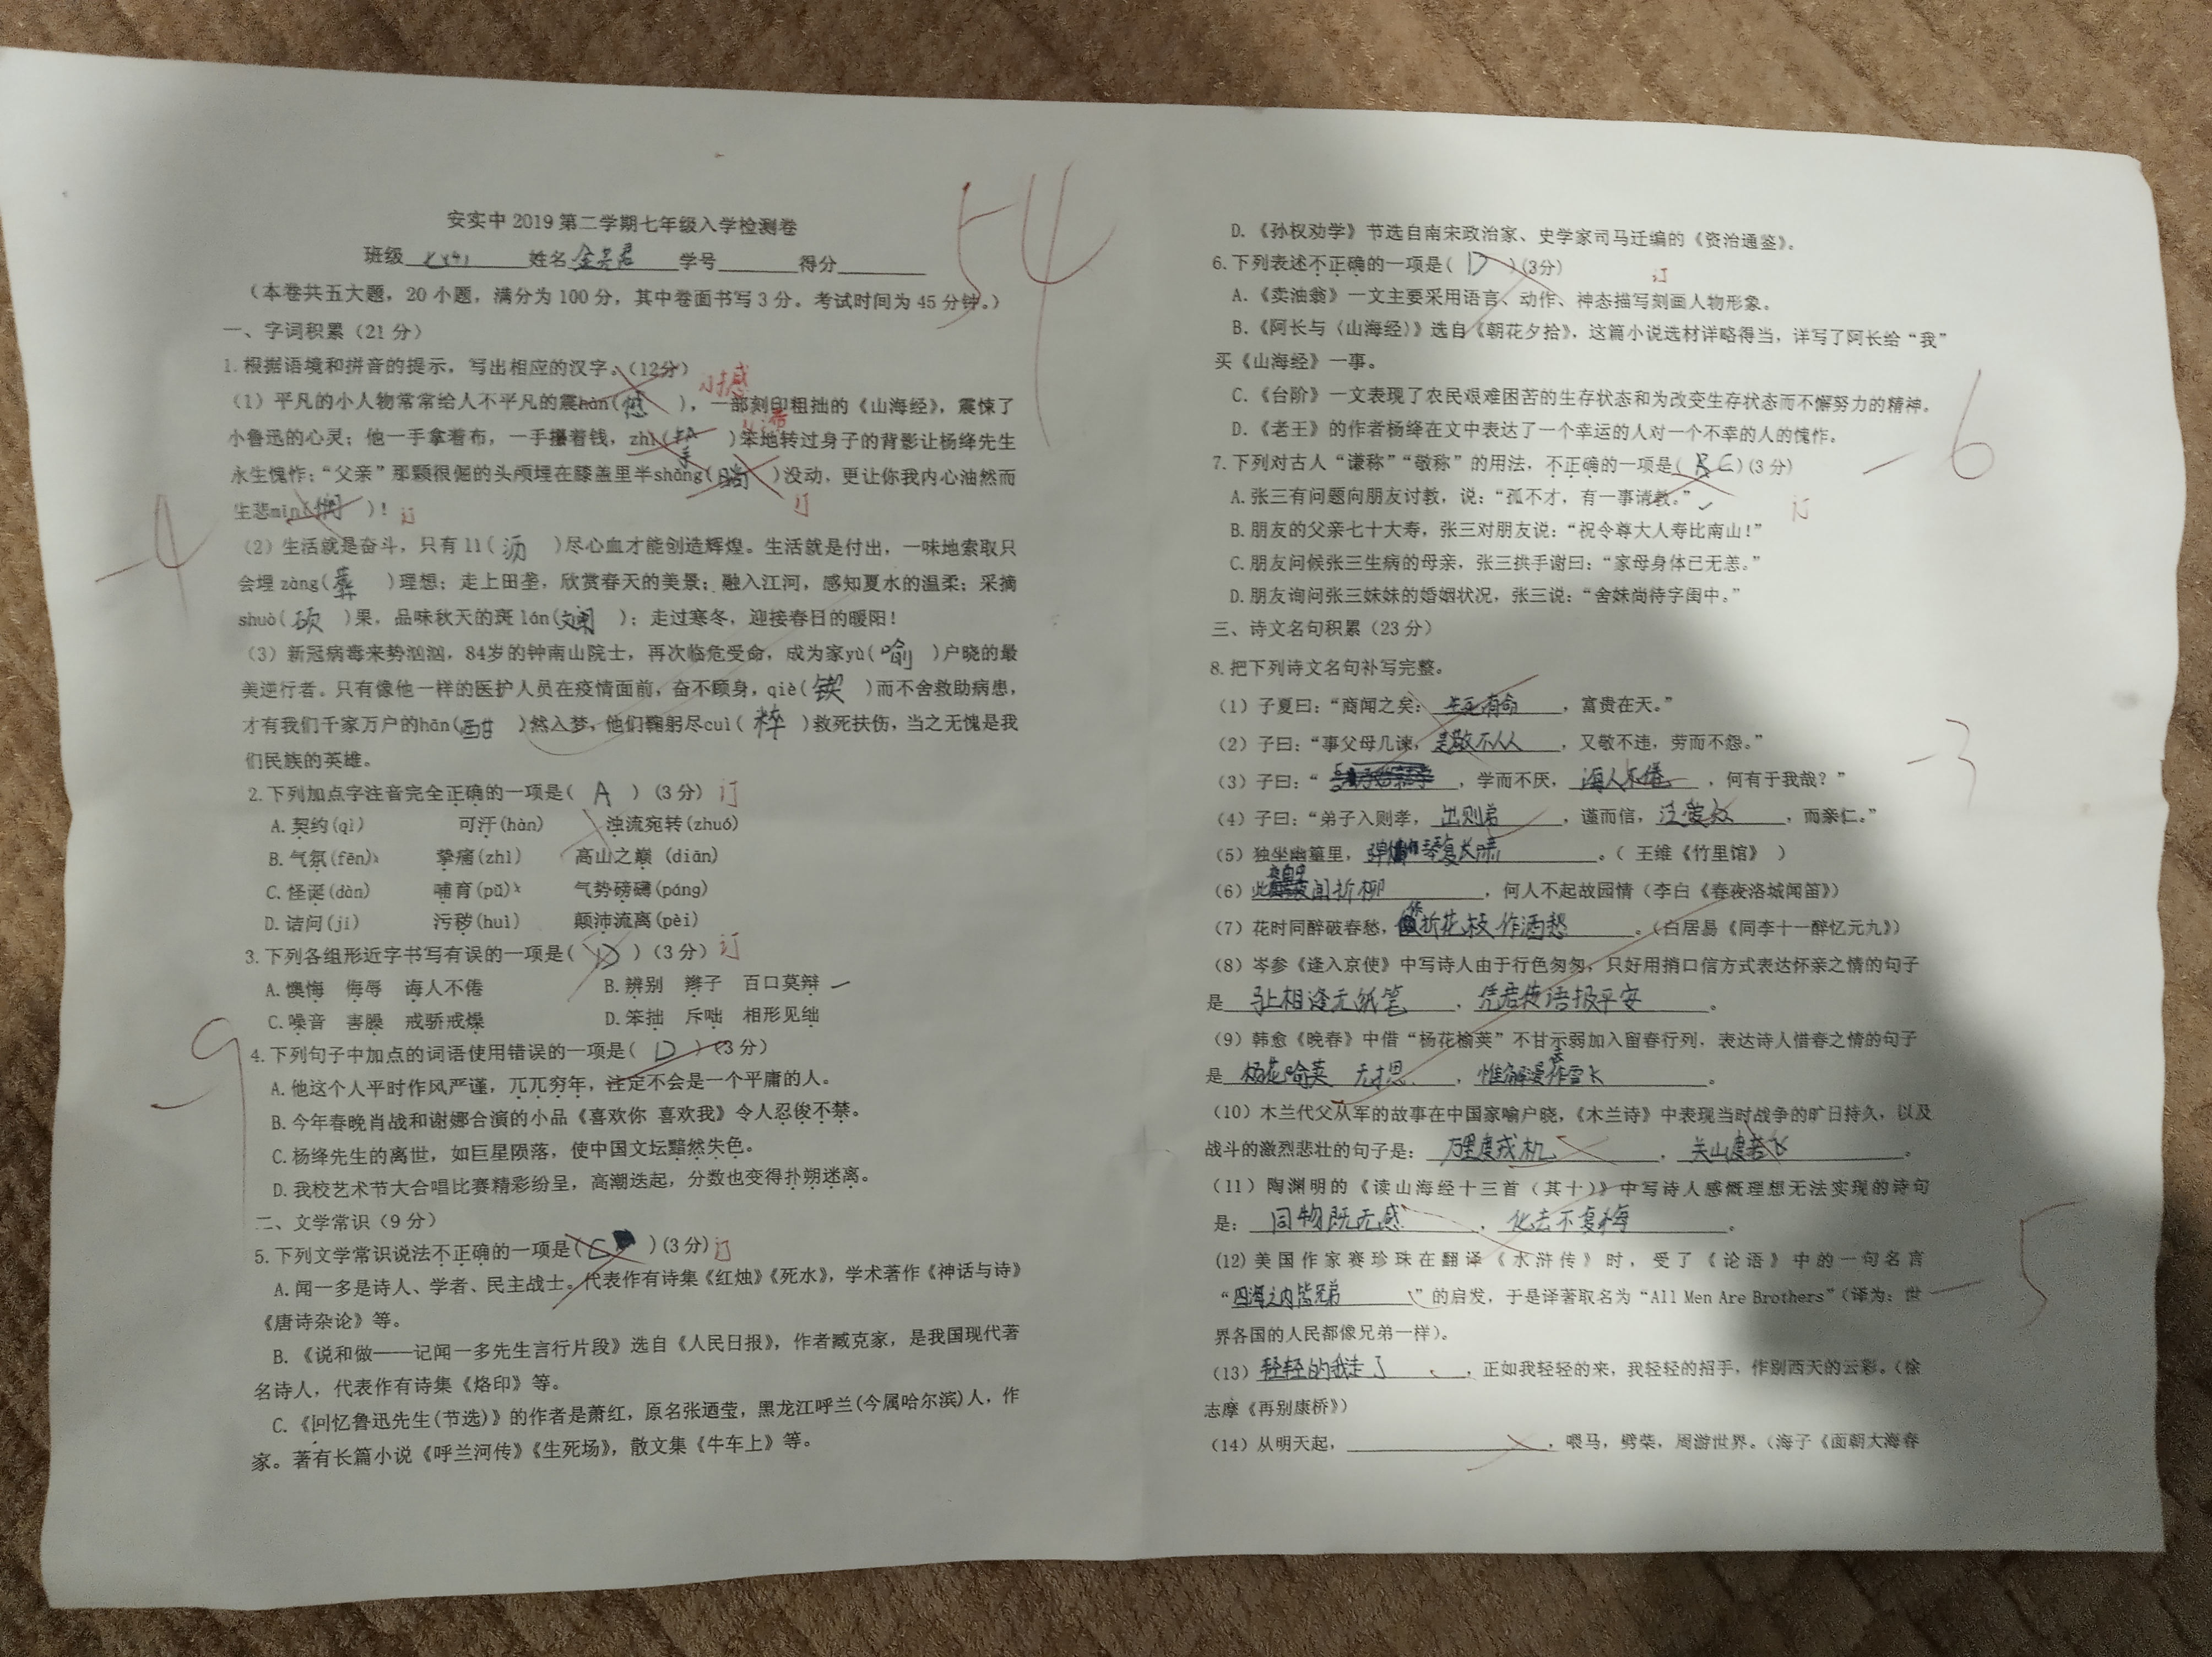 安实中 2019 第二学期七年级入学检测卷
54
班级 姓名 学号 得分
（本卷共五大题，20 小题，满分为 100 分，其中卷面书写 3 分。考试时间为 45 分钟。）
一、字词积累（21 分）
1.根据语境和拼音的提示，写出相应的汉字。（12分）
撼
（1）平凡的小人物常常给人不平凡的震hàn( )，一部刻印粗拙的《山海经》，震悚了
滞
小鲁迅的心灵；他一手拿着布，一手攥着钱，zhì( )笨地转过身子的背影让杨绛先生
永生愧怍；“父亲”那颗很倔的头颅埋在膝盖里半shǎng(晌)没动，更让你我内心油然而
生悲mǐn(悯)！ 订
订
-4
（2）生活就是奋斗，只有 lì(沥)尽心血才能创造辉煌。生活就是付出，一味地索取只
会埋 zàng(葬)理想；走上田垄，欣赏春天的美景；融入江河，感知夏水的温柔；采摘
shuò(硕)果，品味秋天的斑 lán(斓)；走过寒冬，迎接春日的暖阳！
（3）新冠病毒来势汹汹，84岁的钟南山院士，再次临危受命，成为家yù(喻)户晓的最
美逆行者。只有像他一样的医护人员在疫情面前，奋不顾身，qiè(锲)而不舍救助病患，
才有我们千家万户的hān(酣)然入梦，他们鞠躬尽cuì(粹)救死扶伤，当之无愧是我
们民族的英雄。
2.下列加点字注音完全正确的一项是( A )(3 分) 订
A.契约(qì) 可汗(hàn) 浊流宛转(zhuó)
B.气氛(fēn) 挚痛(zhì) 高山之巅 (diān)
C.怪诞(dàn) 哺育(pǔ) 气势磅礴(páng)
D.诘问(jí) 污秽(huì) 颠沛流离(pèi)
3.下列各组形近字书写有误的一项是( D )(3 分) 订
A.懊悔 侮辱 诲人不倦 B.辨别 辫子 百口莫辩
C.噪音 害臊 戒骄戒燥 D.笨拙 斥咄 相形见绌
-9
4.下列句子中加点的词语使用错误的一项是( D )(3 分)
A.他这个人平时作风严谨，兀兀穷年，注定不会是一个平庸的人。
B.今年春晚肖战和谢娜合演的小品《喜欢你 喜欢我》令人忍俊不禁。
C.杨绛先生的离世，如巨星陨落，使中国文坛黯然失色。
D.我校艺术节大合唱比赛精彩纷呈，高潮迭起，分数也变得扑朔迷离。
二、文学常识（9 分）
5.下列文学常识说法不正确的一项是( C )(3 分) 订
A.闻一多是诗人、学者、民主战士。代表作有诗集《红烛》《死水》，学术著作《神话与诗》
《唐诗杂论》等。
B.《说和做——记闻一多先生言行片段》选自《人民日报》，作者臧克家，是我国现代著
名诗人，代表作有诗集《烙印》等。
C.《回忆鲁迅先生(节选)》的作者是萧红，原名张迺莹，黑龙江呼兰(今属哈尔滨)人，作
家。著有长篇小说《呼兰河传》《生死场》，散文集《牛车上》等。
D.《孙权劝学》节选自南宋政治家、史学家司马迁编的《资治通鉴》。
6.下列表述不正确的一项是( D )(3分) 订
A.《卖油翁》一文主要采用语言、动作、神态描写刻画人物形象。
B.《阿长与〈山海经〉》选自《朝花夕拾》，这篇小说选材详略得当，详写了阿长给“我”
买《山海经》一事。
C.《台阶》一文表现了农民艰难困苦的生存状态和为改变生存状态而不懈努力的精神。
D.《老王》的作者杨绛在文中表达了一个幸运的人对一个不幸的人的愧怍。
-6
7.下列对古人“谦称”“敬称”的用法，不正确的一项是( )(3 分)
A.张三有问题向朋友讨教，说：“孤不才，有一事请教。” 订
B.朋友的父亲七十大寿，张三对朋友说：“祝令尊大人寿比南山！”
C.朋友问候张三生病的母亲，张三拱手谢曰：“家母身体已无恙。”
D.朋友询问张三妹妹的婚姻状况，张三说：“舍妹尚待字闺中。”
三、诗文名句积累（23 分）
8.把下列诗文名句补写完整。
（1）子夏曰：“商闻之矣：生死有命，富贵在天。”
（2）子曰：“事父母几谏，是敬不从，又敬不违，劳而不怨。”
-3
（3）子曰：“ ，学而不厌，诲人不倦，何有于我哉？”
（4）子曰：“弟子入则孝，出则弟，谨而信，泛爱众，而亲仁。”
（5）独坐幽篁里，弹琴复长啸。（ 王维《竹里馆》 ）
（6）此夜曲中闻折柳，何人不起故园情（李白《春夜洛城闻笛》）
（7）花时同醉破春愁，醉折花枝作酒愁。（白居易《同李十一醉忆元九》）
（8）岑参《逢入京使》中写诗人由于行色匆匆，只好用捎口信方式表达怀亲之情的句子
是 马上相逢无纸笔，凭君传语报平安。
（9）韩愈《晚春》中借“杨花榆荚”不甘示弱加入留春行列，表达诗人惜春之情的句子
是 杨花榆荚无才思，惟解漫天作雪飞。
（10）木兰代父从军的故事在中国家喻户晓，《木兰诗》中表现当时战争的旷日持久，以及
战斗的激烈悲壮的句子是：万里度戎机，关山度若飞。
（11）陶渊明的《读山海经十三首（其十）》中写诗人感慨理想无法实现的诗句
是：同物既无感，化去不复悔。
（12）美国作家赛珍珠在翻译《水浒传》时，受了《论语》中的一句名言
“四海之内皆兄弟”的启发，于是译著取名为“All Men Are Brothers”（译为：世
-5
界各国的人民都像兄弟一样）。
（13）轻轻的我走了，正如我轻轻的来，我轻轻的招手，作别西天的云彩。（徐
志摩《再别康桥》）
（14）从明天起， ，喂马，劈柴，周游世界。（海子《面朝大海春